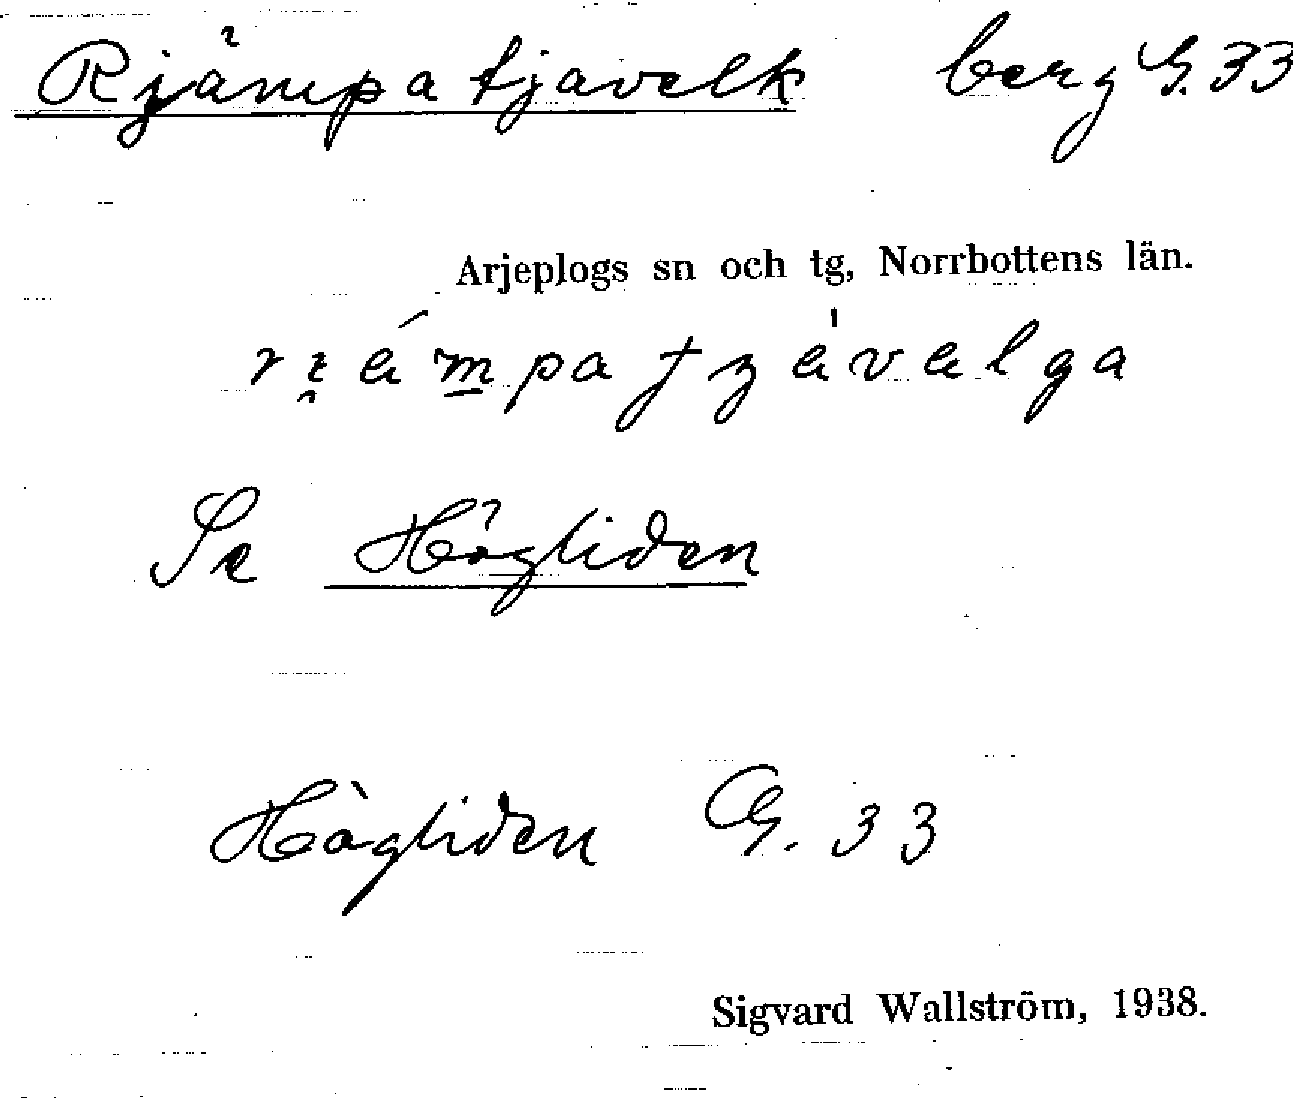 Rjämpatjavelk berg G. 33
Arjeplogs sn och tg, Norrbottens län.
Se Högliden
Högliden G. 33
Sigvard Wallström, 1938.